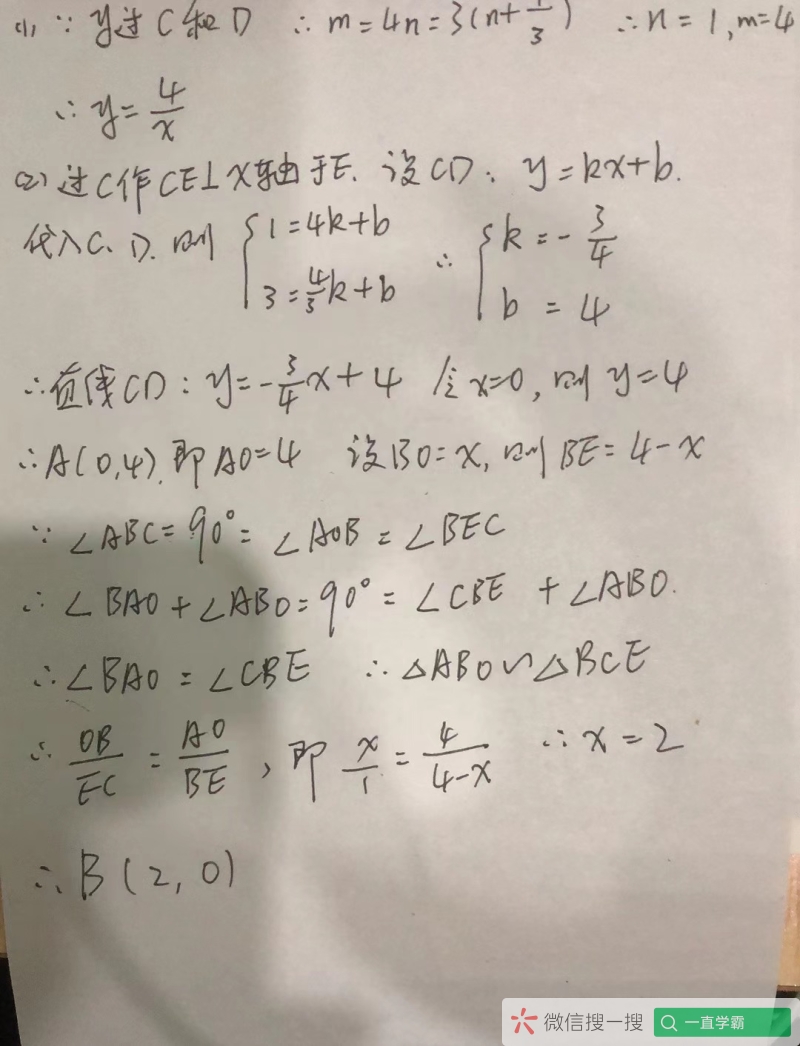 (1) ∵ y过C和D ∴ m=4n=3(n+1/3) ∴ n=1, m=4
∴ y=4/x
(2) 过C作CE⊥X轴于E. 设CD: y=kx+b.
代入C、D. 则 {1=4k+b 3=4/3k+b ∴ {k=-3/4 b=4
∴直线CD: y=-3/4x+4 令x=0, 则y=4
∴A(0,4). 即AO=4 设BO=x, 则BE=4-x
∵ ∠ABC=90°=∠AOB=∠BEC
∴ ∠BAO+∠ABO=90°=∠CBE+∠ABO.
∴ ∠BAO=∠CBE ∴ △ABO∽△BCE
∴ OB/EC=AO/BE, 即 x/1=4/4-x ∴ x=2
∴ B(2,0)
微信搜一搜 一直学霸